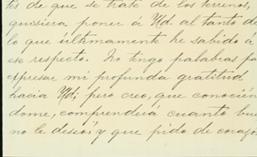 tes de que se trate de los terrenos,
quisiera poner á Ud. al tanto de
lo que últimamente he sabido á
ese respecto. No tengo palabras pa
expresar mi profunda gratitud
hacia Ud; pero creo, que conocién
dome, comprenderá cuanto bue
no le deseo; y que pido de corazo